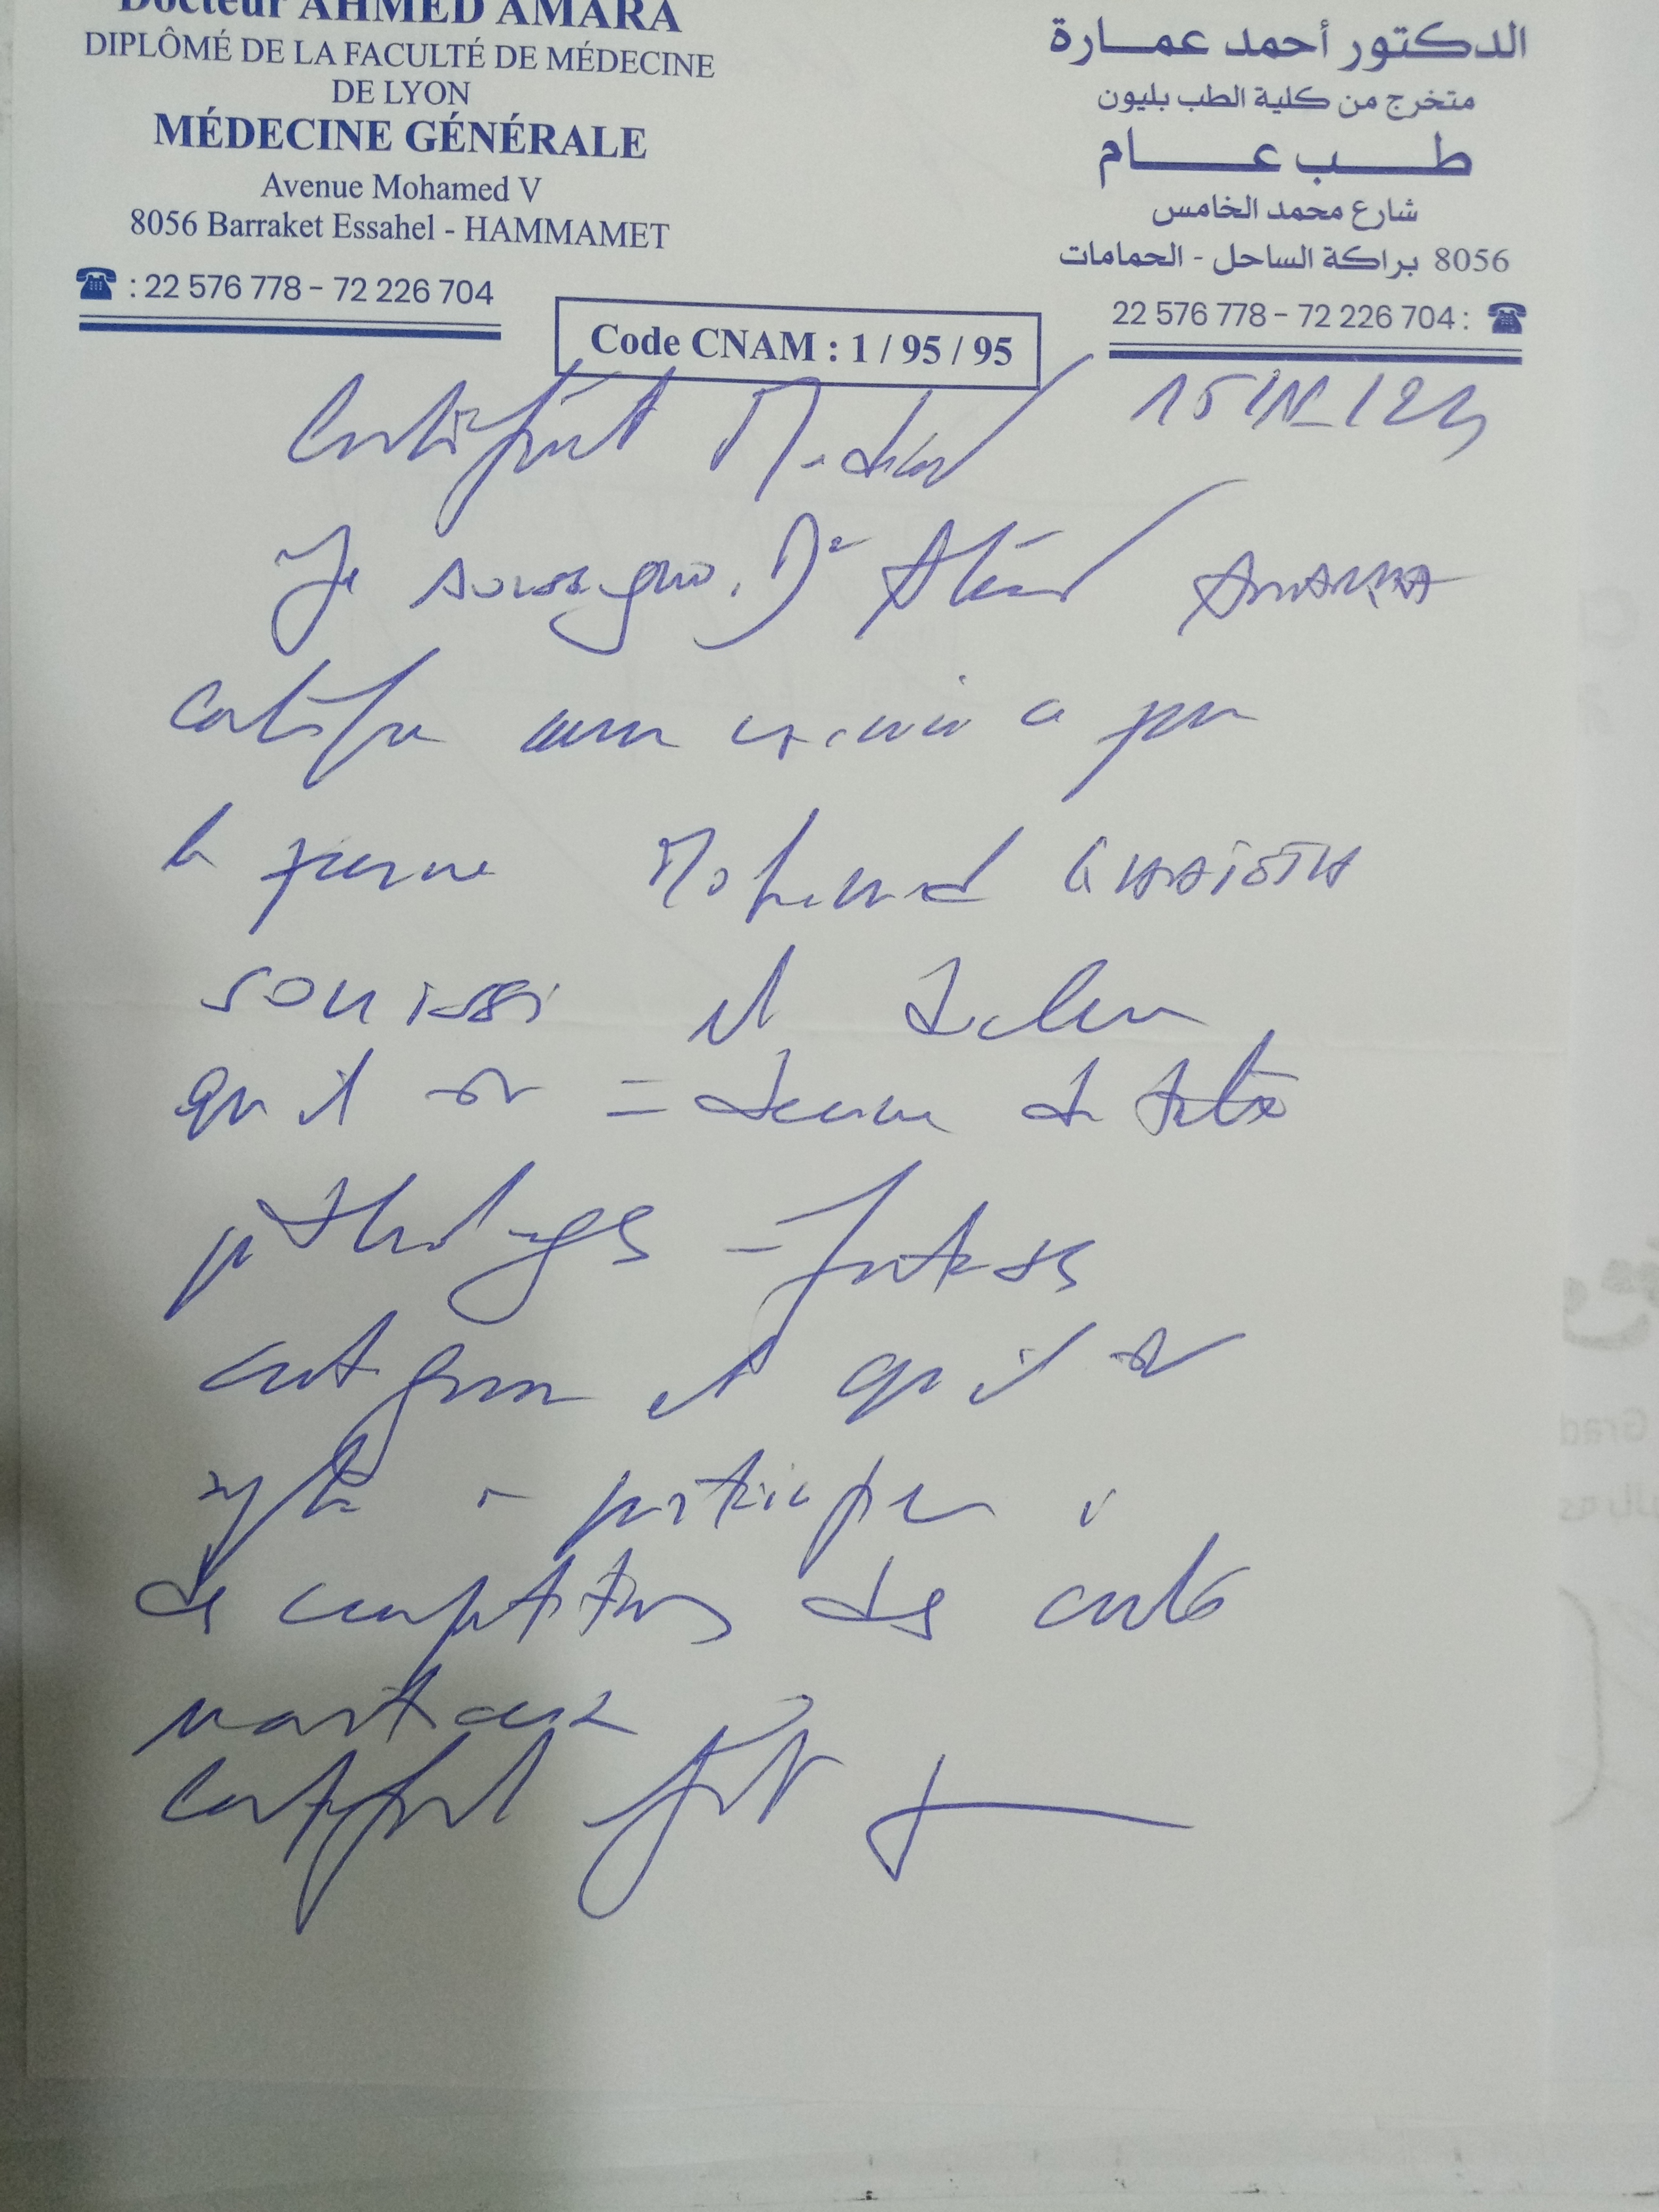 Docteur AHMED AMARA
DIPLÔMÉ DE LA FACULTÉ DE MÉDECINE
DE LYON
MÉDECINE GÉNÉRALE
Avenue Mohamed V
8056 Barraket Essahel - HAMMAMET
: 22 576 778 - 72 226 704
الدكتور أحمد عمارة
متخرج من كلية الطب بليون
طب عام
شارع محمد الخامس
8056 براكة الساحل - الحمامات
22 576 778 - 72 226 704 :
Code CNAM : 1 / 95 / 95
Certificat Médical
Je soussigné, Dr Ahmed AMARA
certifie avoir examiné ce jour
le jeune Mohamed
SOUISSI et déclare
qu'il est indemne de toute
pathologies
et qu'il est
apte à participer à
des compétitions des arts
martiaux
Certificat fait